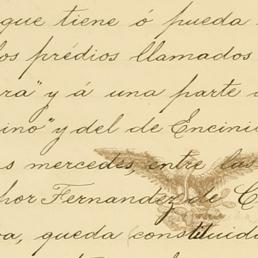 que tiene ó pueda
los prédios llamados
ra" y á una parte
ino" y del de Encini
s mercedes, entre las
hor Fernandez de C
a, queda constituida